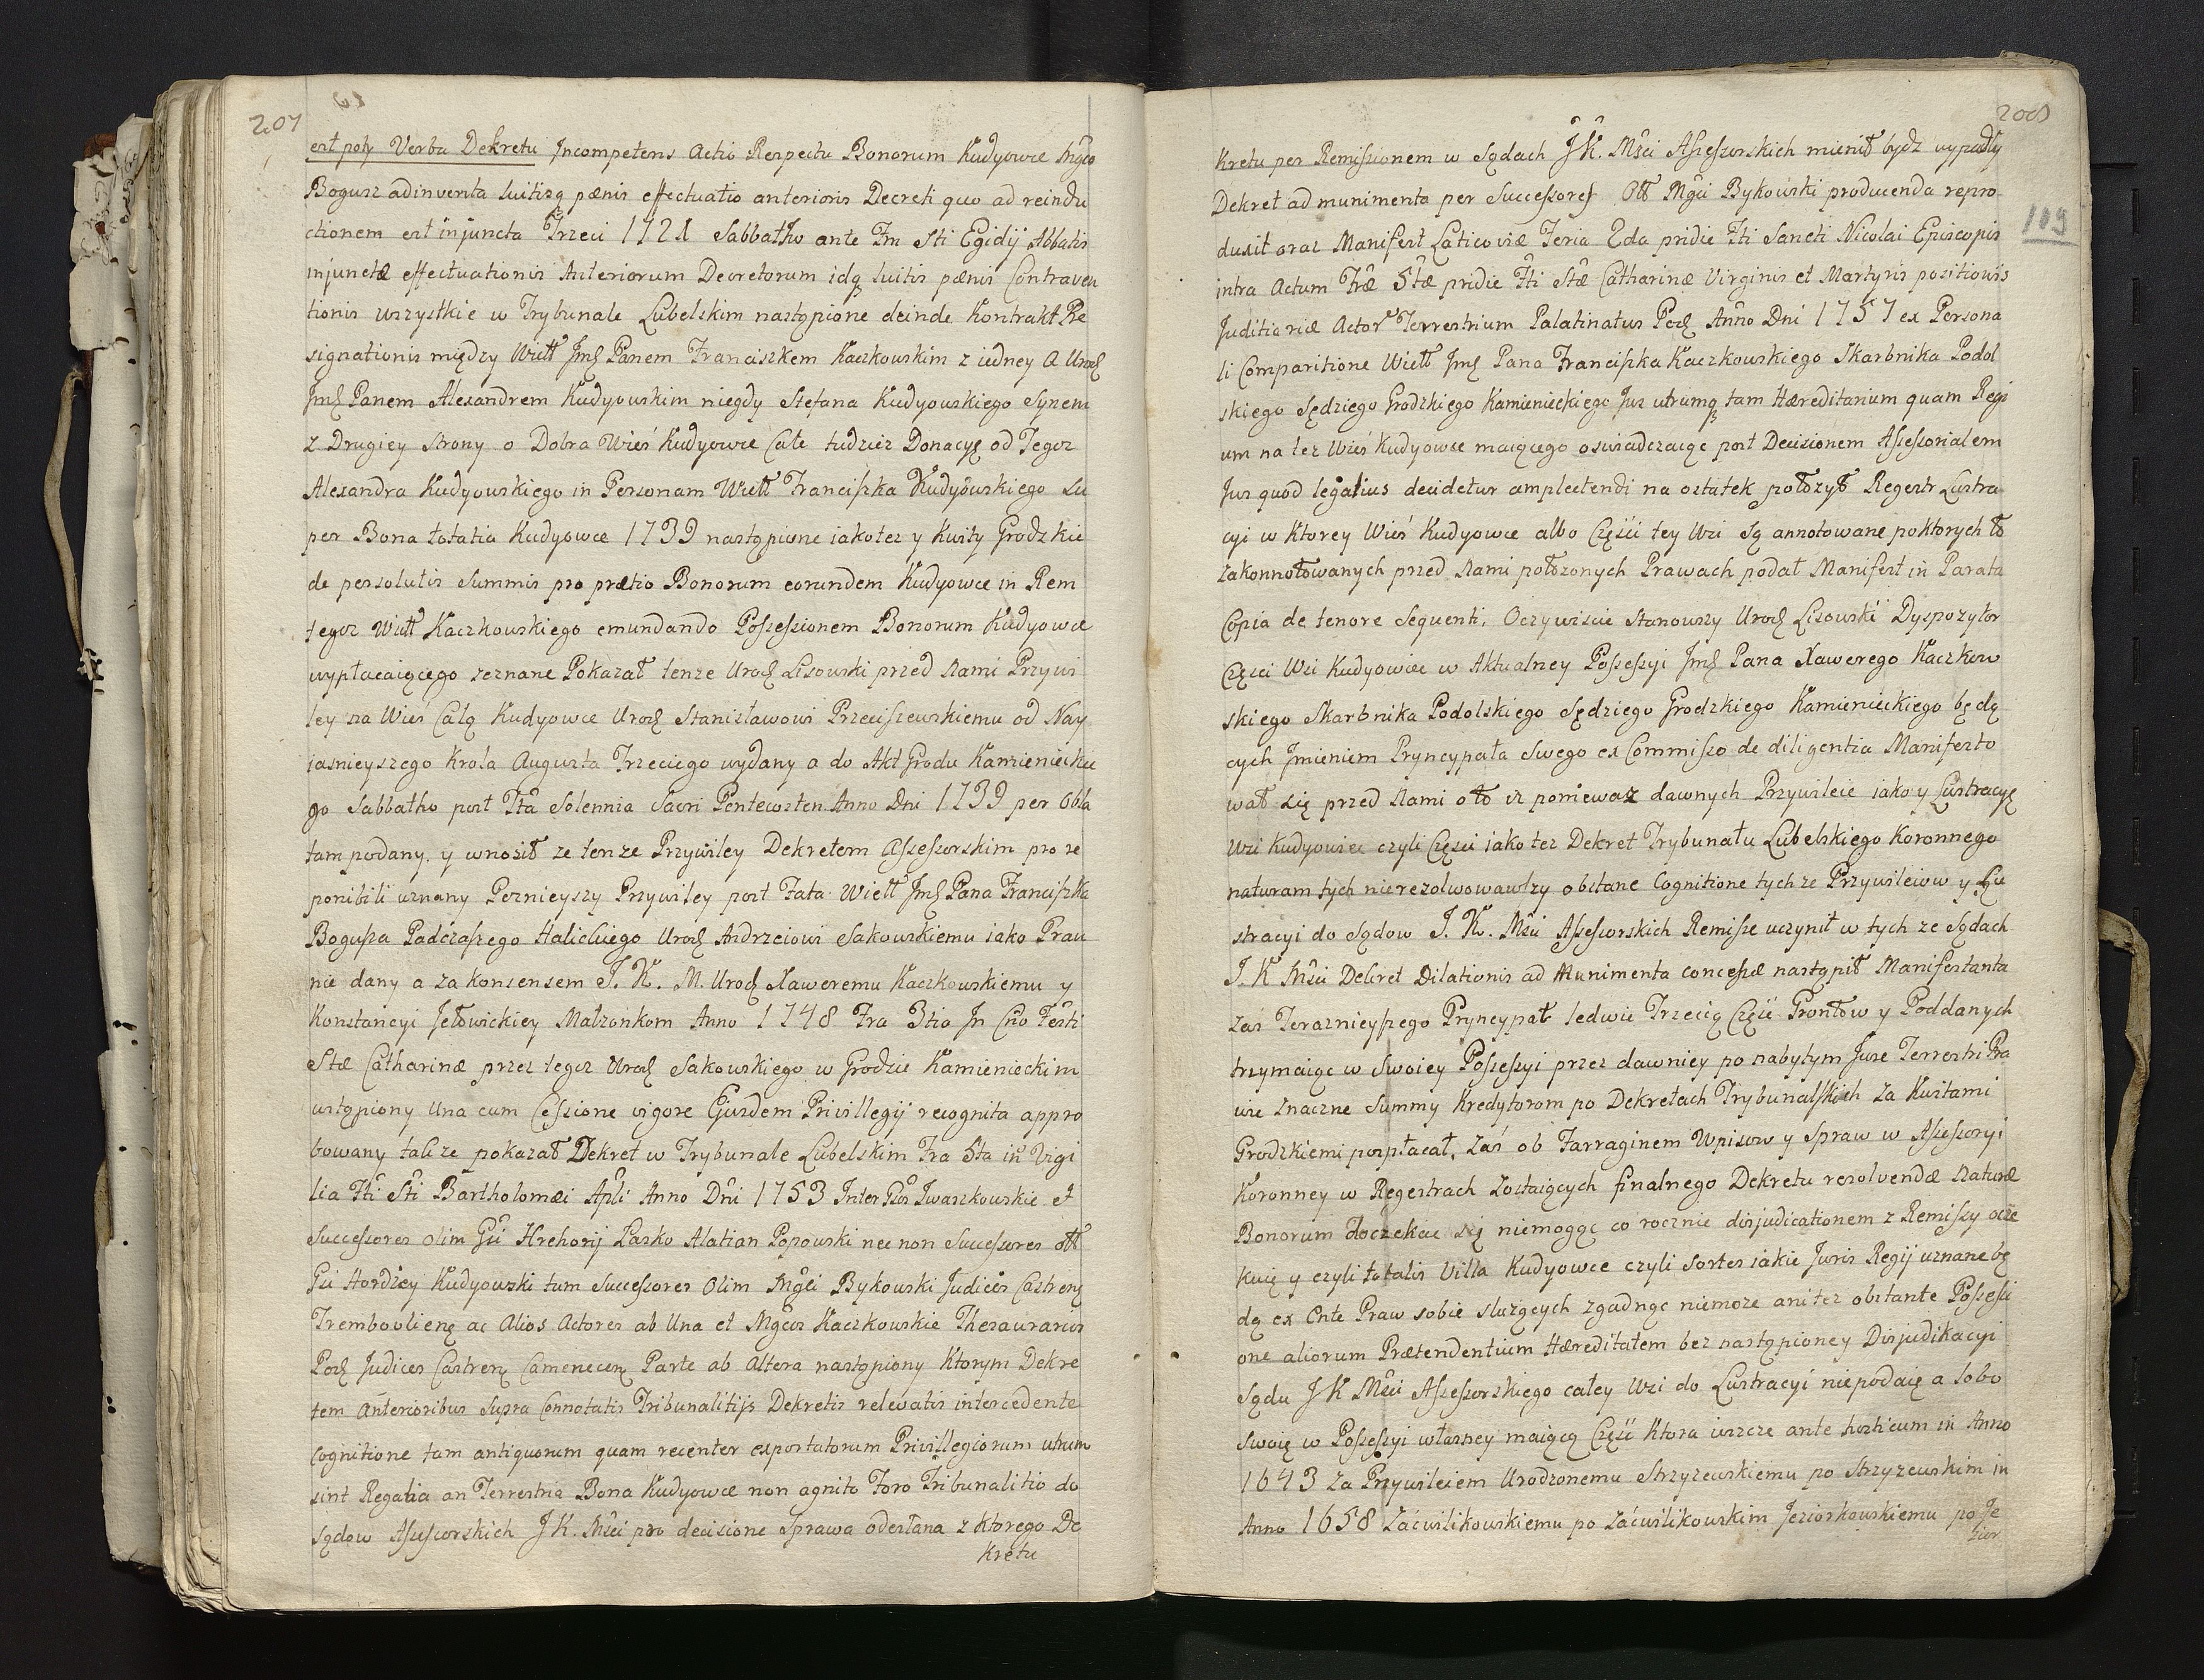 207
est poty Verba Dekretu Incompetens Actio Respectu Bonorum Kudyowce Mgco
Bogusz adinventa luitisq pænis effectuatio anterioris Decreti quo ad reindu
ctionem est injuncta Trzeci 1721 Sabbatho ante Fm Sti Egidij Abbatis
injunctæ effectuationis Anteriorum Decretorum idq luitis pænis Contraven
tionis wszystkie w Trybunale Lubelskim nastąpione deinde Kontrakt Re
signationis między Wiell Jmć Panem Franciszkem Kaczkowskim z iedney a Urodź
Jmć Panem Alexandrem Kudyowskim niegdy Stefana Kudyowskiego Synem
z Drugiey strony o Dobra Wieś Kudyowce Całe tudzież Donacyę od Tegoz
Alexandra Kudyowskiego in Personam Wiell Franciszka Kudyowskiego Su
per Bona totatia Kudyowce 1739 nastąpione iakotez y Kwity Grodzkie
de persolutis Summis pro prætio Bonorum eorundem Kudyowce in Rem
tegoz Wiell Kaczkowskiego emundando Possessionem Bonorum Kudyowce
wypłacaiącego zeznane Pokazał tenze Urodź Lisowski przed Nami Przywi
ley na Wieś Całą Kudyowce Urodź Stanisławowi Przeciszewskiemu od Nay
iasnieyszego Krola Augusta Trzeciego wydany a do Akt Grodu Kamienieckie
go Sabbatho post Fta Solennia Sacri Pentecosten Anno Dni 1739 per Obla
tam podany, y wnosił ze tenze Przywiley Dekretem Assessorskim pro re
ponibili uznany Poznieyszy Przywiley post Fata Wiell Jmć Pana Franciszka
Bogusza Padczaszego Halickiego Urodź Andrzeiowi Sakowskiemu iako Praw
nie dany a za konsensem J. K. M. Urodź Xaweremu Kaczkowskiemu y
Konstancyi Jełowickiey Małzonkom Anno 1748 Fra 3tia In Cno Festi
Stæ Catharinæ przez tegoz Urodź Sakowskiego w Grodzie Kamienieckim
ustąpiony Una cum Cessione vigore Ejusdem Privillegij recognita appro
bowany takze pokazał Dekret w Trybunale Lubelskim Fra 5ta in Vigi
lia Fti Sti Bartholomæi Apli Anno Dni 1753 Inter Gsos Iwaszkowskie et
Successores olim Gsi Hrehorij Lasko Alatian Popowski nec non Successores oll
Gsi Hordzey Kudyowski tum Successores Olim Mgci Bykowski Judices Castreny
Tremboolienę ac Alios Actores ab Una et Mgcos Kaczkowskie Thesaurarios
Podź Judices Castreny Camenecen Parte ab Altera nastąpiony Ktorym Dekre
tem Anterioribus Supra Connotatis Tribunalitijs Dekretis relevatis intercedente
cognitione tam antiquorum quam recenter exportatorum Privillegiorum utrum
sint Regalia an Terrestria Bona Kudyowce non agnito Foro Tribunalitio do
Sądow Assessorskich J K. Msci pro decisione Sprawa odesłana z Ktorego De
Kretu
208
109
Kretu per Remissionem w Sądach J K. Msci Assessorskich mienił bydz wypadły
Dekret ad munimenta per Successores Oll Mgci Bykowski producenda repro
duxit oraz Manifest Laticoviæ Feria 2da pridie Fti Sancti Nicolai Episcopis
intra Actum Fræ 5tæ pridie Fti Stæ Catharinæ Virginis et Martyris positiowis
Juditiariæ Actor Terrestrium Palatinatus Podź Anno Dni 1757 ex Persona
li Comparitione Wiell Jmć Pana Franciszka Kaczkowskiego Skarbnika Podol
skiego Sędziego Grodzkiego Kamienieckiego Jus utrumq tam Hæreditarium quam Regi
um na tez Wieś Kudyowce maiącego oswiadczaiąc post Decisionem Assessorialem
Jus quod legalius decidetur amplectendi na ostatek położył Regestr Lustra
cyi w Ktorey Wieś Kudyowce albo Części tey Wsi są annotowane poktorych to
zakonnotowanych przed Nami położonych Prawach podał Manifest in Parata
Copia de tenore Sequenti. Oczywiscie Stanowszy Urodź Lisowski Dyspozytor
Częsci Wsi Kudyowiec w Aktualney Possessyi Jmć Pana Xawerego Kaczkow
skiego Skarbnika Podolskiego Sędziego Grodzkiego Kamienieckiego będą
cych Jmieniem Pryncypała Swego ex Commisso de diligentia Manifesto
wał się przed Nami oto iz poniewaz dawnych Przywileie iako y Lustracyę
Wsi Kudyowiec czyli Częsci iako tez Dekret Trybunału Lubelskiego Koronnego
naturam tych nierezolwowawszy obstane Cognitione tych ze Przywileiow y Lu
stracyi do Sądow J. K. Msci Assessorskich Remisse uczynił w tych ze Sądach
J. K Msci Dekret Dilationis ad Munimenta concessæ nastąpił Manifestanta
zaś Terazniejszego Pryncypał ledwie Trzecią Część Grontow y Poddanych
trzymaiąc w Swoiey Possessyi przez dawniey po nabytym Jure Terrestri Pra
wie Znaczne Summy Kredytorom po Dekretach Trybunalskich za Kwitami
Grodzkiemi pospłacał, Zaś ob Farraginem Wpisow y Spraw w Assessoryi
Koronney w Regestrach zostaiących finalnego Dekretu rezolvendæ Naturæ
Bonorum doczekac się niemogąc co rocznie disjudicationem z Remissy ocze
kuię y czyli totalis Villa Kudyowce czyli Sortes iakie Juris Regij uznane bę
dą ex Cnte Praw sobie sluzących zgadnąc niemoze ani tez obstante Possessi
one aliorum Prætendentium Hæreditatem bez nastąpioney Disjudikacyi
Sądu J K Msci Assessorskiego całey Wsi do Lustracyi niepodaię a Sobo
Swoię w Possessyi własney maiącą Część Ktora ieszcze ante hosticum in Anno
1643 za Przywileiem Urodzonemu Strzyzewskiemu po Strzyzewskim in
Anno 1658 Zaćwilikowskiemu po Zaćwilikowskim Jeziorkowskiemu po Je
zior